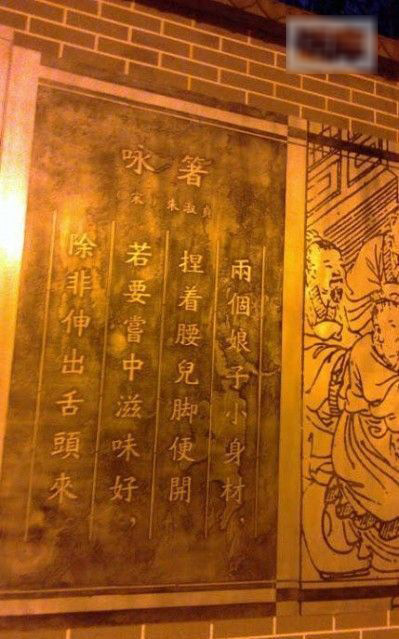 咏箸
宋 朱淑貞
兩個娘子小身材，
捏着腰兒脚便開
若要嘗中滋味好，
除非伸出舌頭來